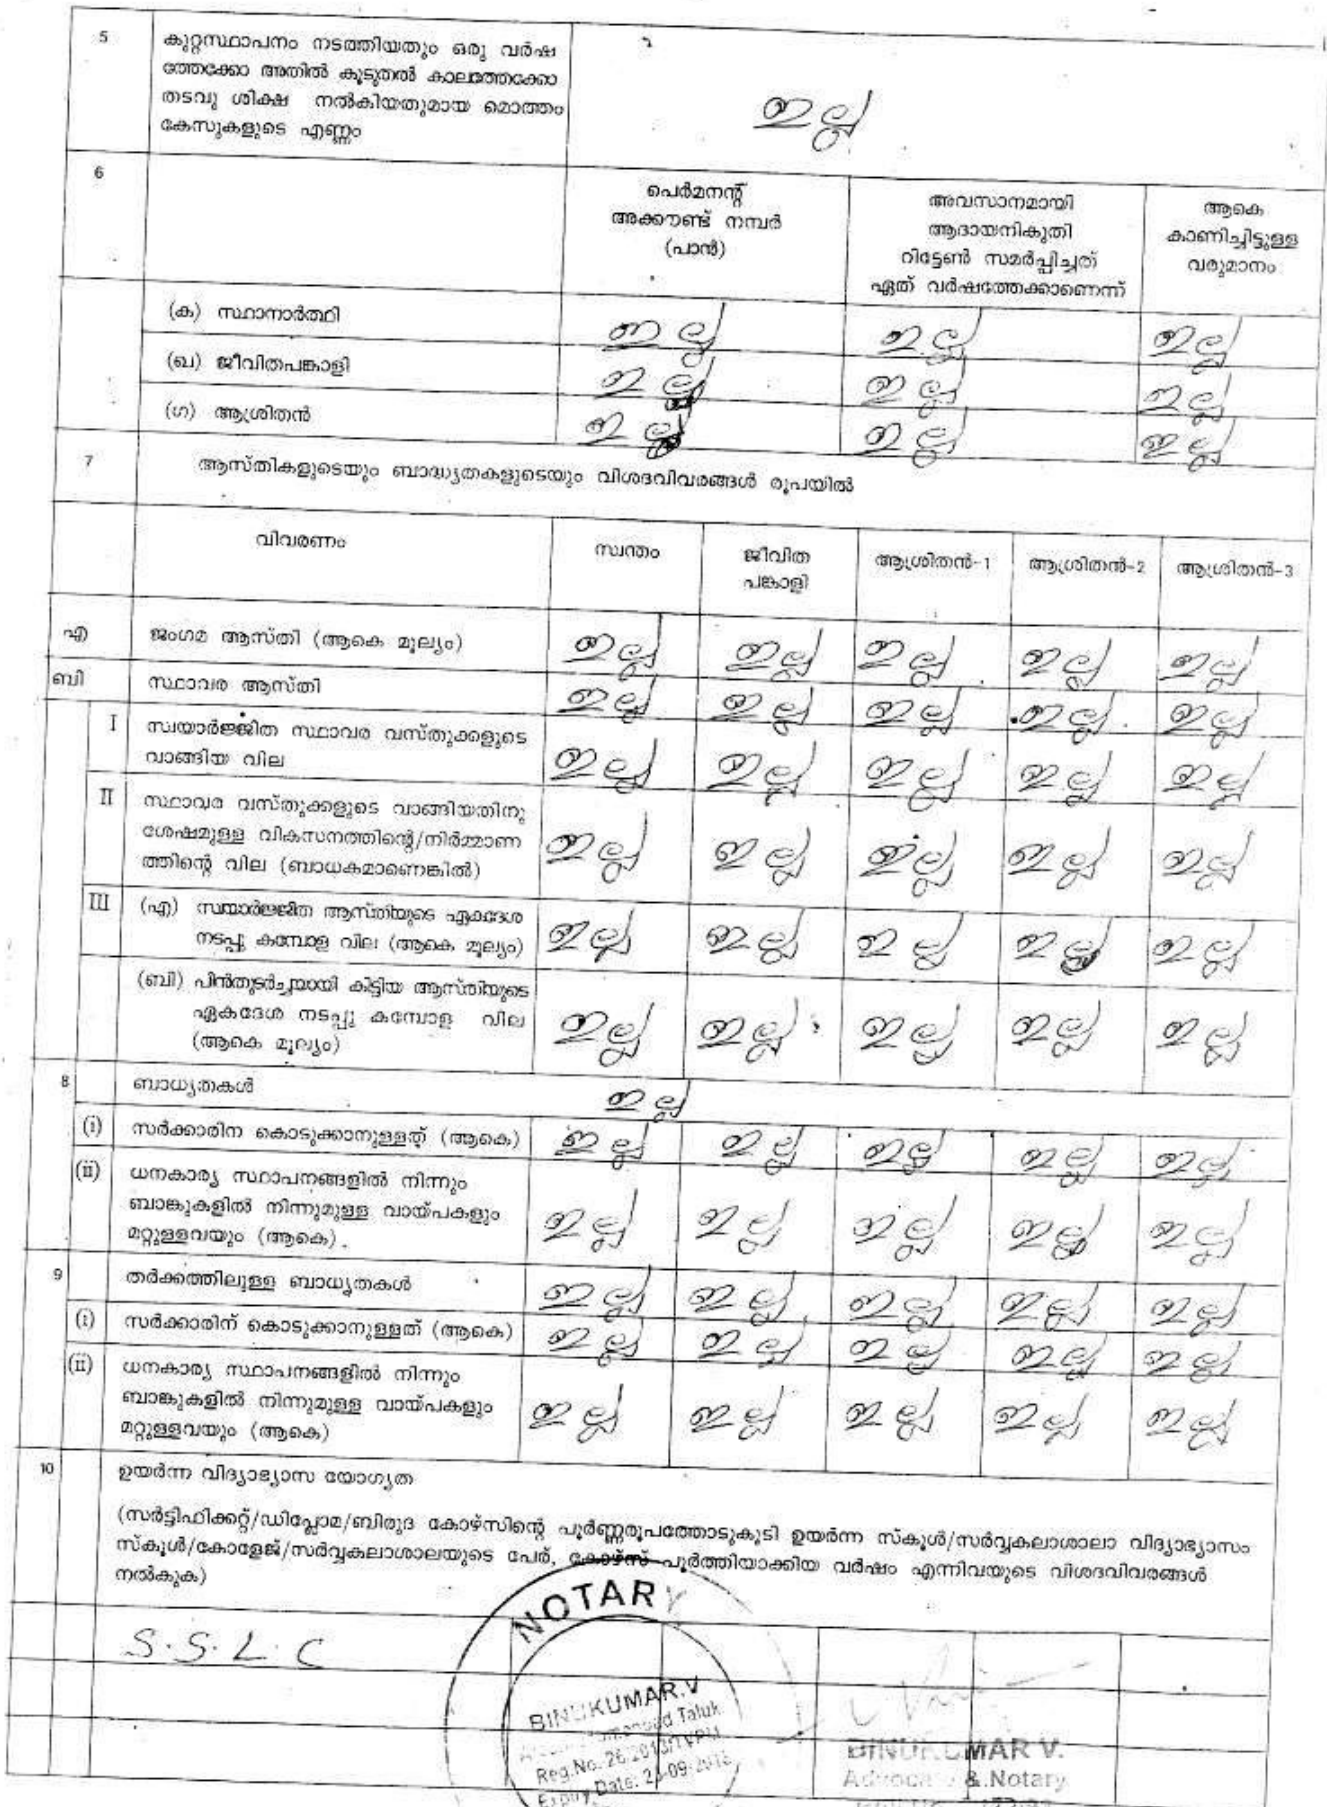 5 കുറ്റസ്ഥാപനം നടത്തിയതും ഒരു വർഷ
ത്തേക്കോ അതിൽ കൂടുതൽ കാലത്തേക്കോ
തടവു ശിക്ഷ നൽകിയതുമായ മൊത്തം
കേസുകളുടെ എണ്ണം
ഇല്ല
6 പെർമനന്റ് അക്കൗണ്ട് നമ്പർ (പാൻ) അവസാനമായി ആദായനികുതി റിട്ടേൺ സമർപ്പിച്ചത് ഏത് വർഷത്തേക്കാണെന്ന് ആകെ കാണിച്ചിട്ടുള്ള വരുമാനം
(ക) സ്ഥാനാർത്ഥി ഇല്ല ഇല്ല ഇല്ല
(ഖ) ജീവിതപങ്കാളി ഇല്ല ഇല്ല ഇല്ല
(ഗ) ആശ്രിതൻ ഇല്ല ഇല്ല ഇല്ല
7 ആസ്തികളുടെയും ബാദ്ധ്യതകളുടെയും വിശദവിവരങ്ങൾ രൂപയിൽ
വിവരണം സ്വന്തം ജീവിത പങ്കാളി ആശ്രിതൻ-1 ആശ്രിതൻ-2 ആശ്രിതൻ-3
എ ജംഗമ ആസ്തി (ആകെ മൂല്യം) ഇല്ല ഇല്ല ഇല്ല ഇല്ല ഇല്ല
ബി സ്ഥാവര ആസ്തി ഇല്ല ഇല്ല ഇല്ല ഇല്ല ഇല്ല
I സ്വയാർജ്ജിത സ്ഥാവര വസ്തുക്കളുടെ
വാങ്ങിയ വില ഇല്ല ഇല്ല ഇല്ല ഇല്ല ഇല്ല
II സ്ഥാവര വസ്തുക്കളുടെ വാങ്ങിയതിനു
ശേഷമുള്ള വികസനത്തിന്റെ/നിർമ്മാണ
ത്തിന്റെ വില (ബാധകമാണെങ്കിൽ) ഇല്ല ഇല്ല ഇല്ല ഇല്ല ഇല്ല
III (എ) സ്വയാർജ്ജിത ആസ്തിയുടെ ഏകദേശ
നടപ്പു കമ്പോള വില (ആകെ മൂല്യം) ഇല്ല ഇല്ല ഇല്ല ഇല്ല ഇല്ല
(ബി) പിൻതുടർച്ചയായി കിട്ടിയ ആസ്തിയുടെ
ഏകദേശ നടപ്പു കമ്പോള വില
(ആകെ മൂല്യം) ഇല്ല ഇല്ല ഇല്ല ഇല്ല ഇല്ല
8 ബാധ്യതകൾ ഇല്ല
(i) സർക്കാരിന കൊടുക്കാനുള്ളത് (ആകെ) ഇല്ല ഇല്ല ഇല്ല ഇല്ല ഇല്ല
(ii) ധനകാര്യ സ്ഥാപനങ്ങളിൽ നിന്നും
ബാങ്കുകളിൽ നിന്നുമുള്ള വായ്പകളും
മറ്റുള്ളവയും (ആകെ) ഇല്ല ഇല്ല ഇല്ല ഇല്ല ഇല്ല
9 തർക്കത്തിലുള്ള ബാധ്യതകൾ ഇല്ല ഇല്ല ഇല്ല ഇല്ല ഇല്ല
(i) സർക്കാരിന് കൊടുക്കാനുള്ളത് (ആകെ) ഇല്ല ഇല്ല ഇല്ല ഇല്ല ഇല്ല
(ii) ധനകാര്യ സ്ഥാപനങ്ങളിൽ നിന്നും
ബാങ്കുകളിൽ നിന്നുമുള്ള വായ്പകളും
മറ്റുള്ളവയും (ആകെ) ഇല്ല ഇല്ല ഇല്ല ഇല്ല ഇല്ല
10 ഉയർന്ന വിദ്യാഭ്യാസ യോഗ്യത
(സർട്ടിഫിക്കറ്റ്/ഡിപ്ലോമ/ബിരുദ കോഴ്സിന്റെ പൂർണ്ണരൂപത്തോടുകൂടി ഉയർന്ന സ്കൂൾ/സർവ്വകലാശാലാ വിദ്യാഭ്യാസം
സ്കൂൾ/കോളേജ്/സർവ്വകലാശാലയുടെ പേര്, കോഴ്സ് പൂർത്തിയാക്കിയ വർഷം എന്നിവയുടെ വിശദവിവരങ്ങൾ
നൽകുക)
S.S.L.C
NOTARY
BINUKUMAR.V
Taluk
Reg.No. 26/2013/TVPM
Expiry Date:
BINUKUMAR V.
Advocate & Notary